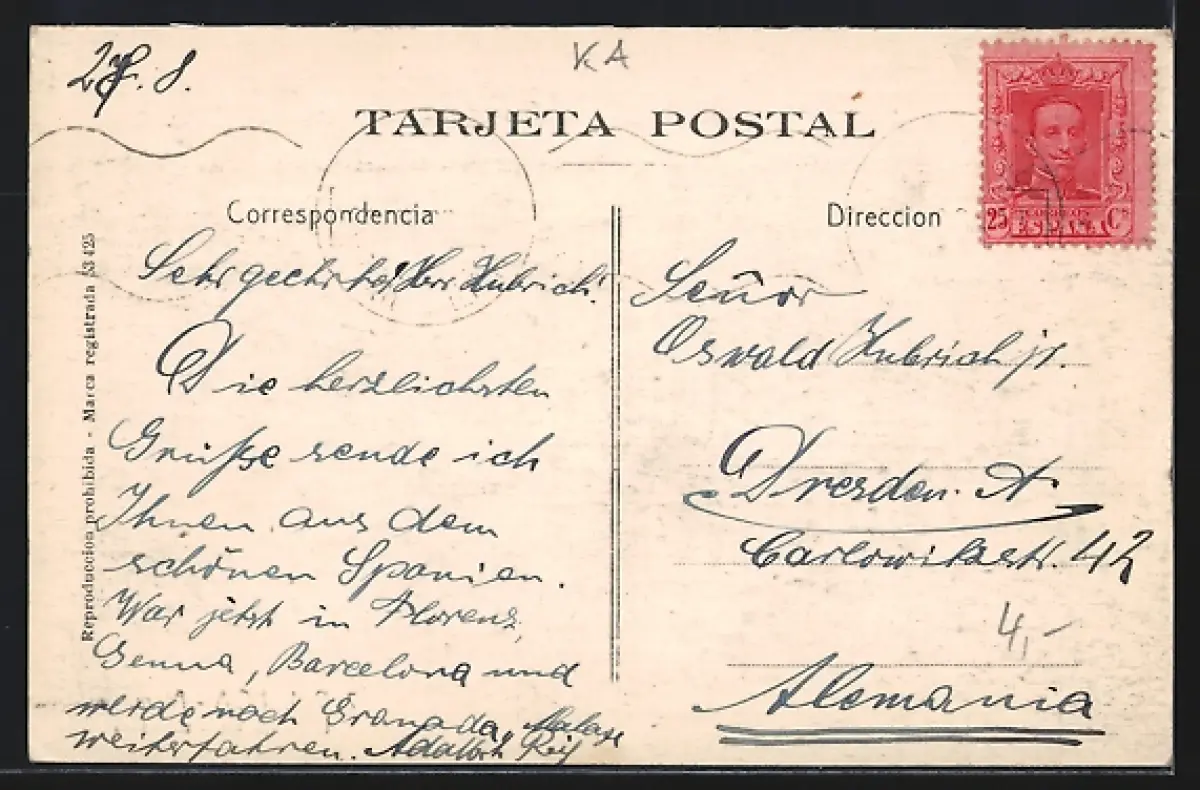 27. 8.
KA
TARJETA POSTAL
Correspondencia
Direccion
25 Cs
ESPAÑA
Reproduccion prohibida - Marca registrada 53425
Sehr geehrter Herr Hubrich!
Die herzlichsten
Grüße sende ich
Ihnen aus dem
schönen Spanien.
War jetzt in Florenz,
Genua, Barcelona und
werde noch Granada, Malaga
weiterfahren.
Señor
Oswald Hubrich jr.
Dresden. A.
Carlowitzstr. 42
4,-
Alemania